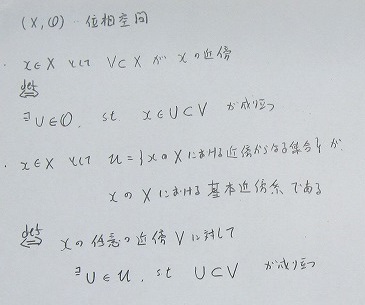 (X, O) … 位相空間
・ x∈X として V⊂X が xの近傍
def
⇔
∃U∈O, s.t. x∈U⊂V が成り立つ
・ x∈X として U={xのXにおける近傍からなる集合}が、
xのXにおける基本近傍系である
def
⇔ xの任意の近傍Vに対して
∃U∈U, s.t U⊂V が成り立つ